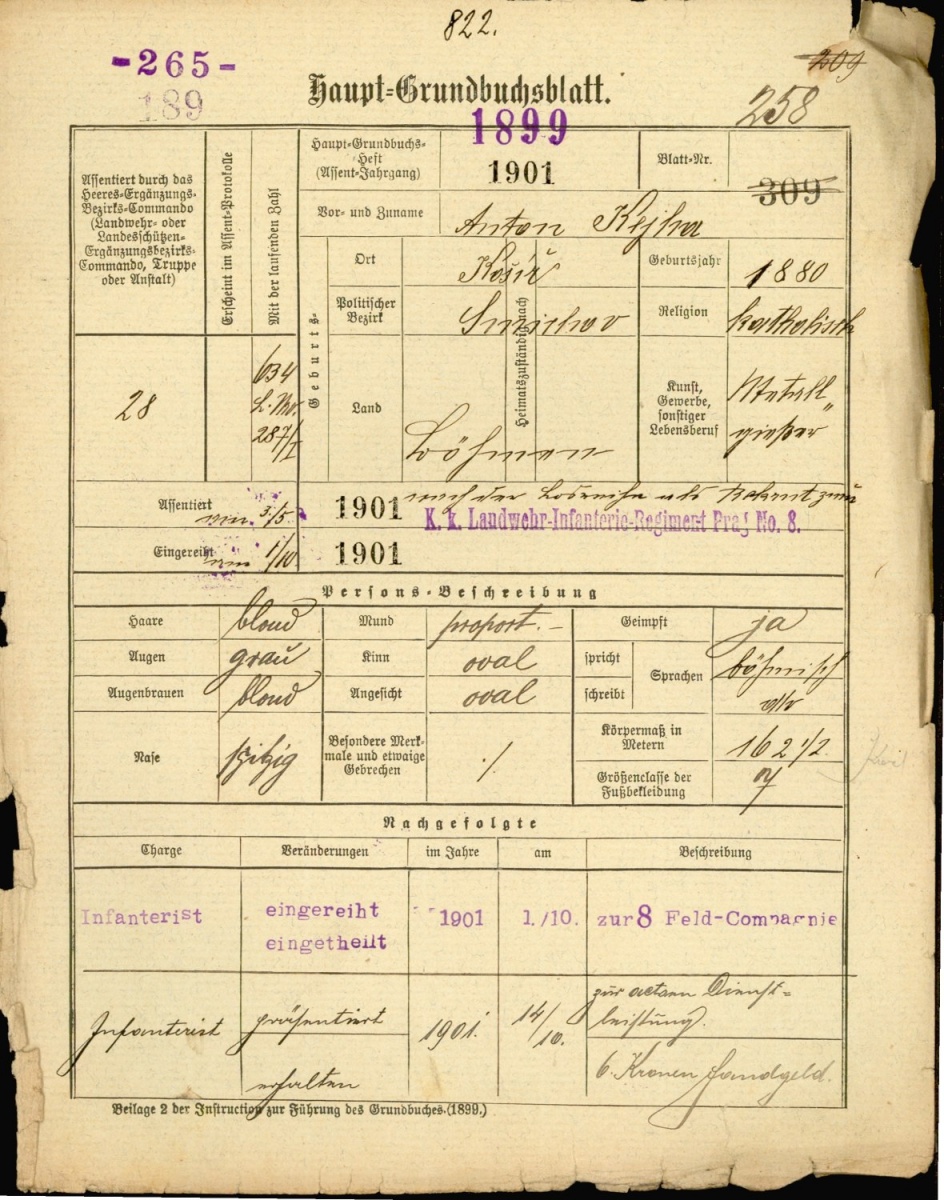 822.
-265-
189
209
258
Haupt=Grundbuchsblatt.
1899
Assentiert durch das
Heeres-Ergänzungs-
Bezirks-Commando
(Landwehr- oder
Landesschützen-
Ergänzungsbezirks-
Commando, Truppe
oder Anstalt)
Erscheint im Assent-Protokolle
Mit der laufenden Zahl
Haupt-Grundbuchs-
Heft
(Assent-Jahrgang)
1901
Blatt-Nr.
309
Vor- und Zuname
Anton Kejha
Geburts-
Ort
Košíř
Geburtsjahr
1880
Politischer
Bezirk
Smichov
Religion
katholisch
Heimatszuständig nach
Land
Böhmen
Kunst,
Gewerbe,
sonstiger
Lebensberuf
Metall„
gießer
28
634
287/I
Assentiert
am 3./5.
1901
nach der Losreihe als Rekrut zum
K. k. Landwehr-Infanterie-Regiment Prag No. 8.
Eingereiht
am 1/10.
1901
Persons-Beschreibung
Haare
blond
Mund
proport. –
Geimpft
ja
Augen
grau
Kinn
oval
spricht
Sprachen
böhmisch
Augenbrauen
blond
Angesicht
oval
schreibt
dto
Nase
spitzig
Besondere Merk-
male und etwaige
Gebrechen
./.
Körpermaß in
Metern
162 1/2
Größenclasse der
Fußbekleidung
7
Nachgefolgte
Charge
Veränderungen
im Jahre
am
Beschreibung
Infanterist
eingereiht
eingetheilt
1901
1./10.
zur 8 Feld-Compagnie
Infanterist
präsentiert
1901.
14/10.
zur activen Dienst=
leistung.
erhalten
6. Kronen Handgeld.
Beilage 2 der Instruction zur Führung des Grundbuches.(1899.)